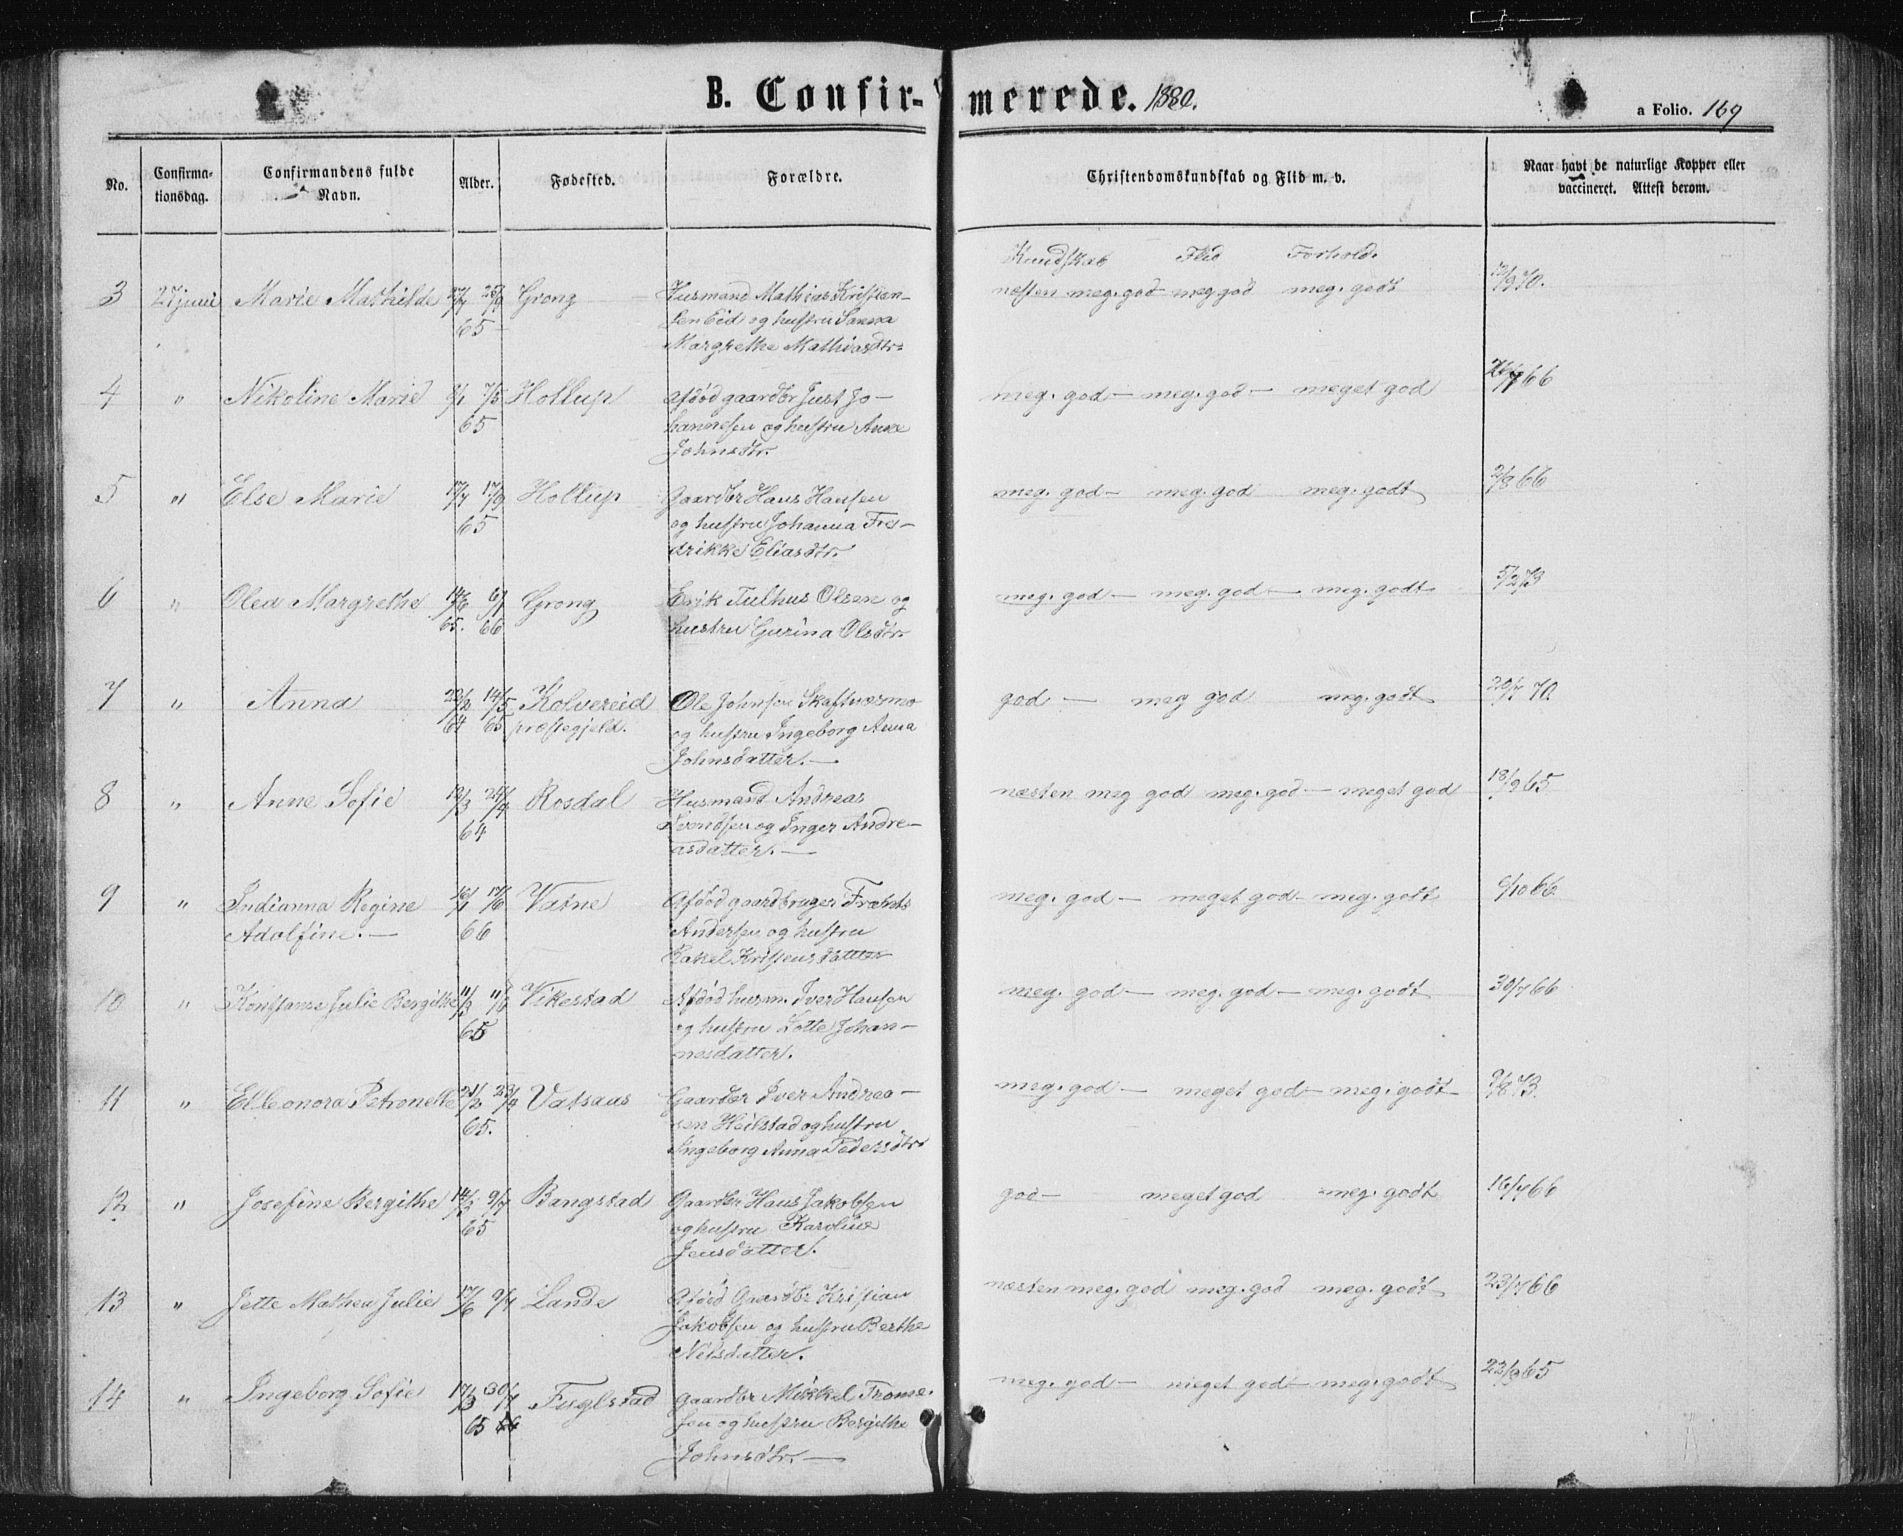 B. Confir- merede. 1880.
a Folio. 169
No. Confirma-tionsdag. Confirmandens fulde Navn. Alder. Fødested. Forældre. Christendomskundskab og Flid m. v. Naar havt de naturlige Kopper eller vaccineret. Attest derom.
Kundskab Flid Forhold.
3 27 juni Marie Mathilde Grong Husmand Mathias Kristian- næsten meg. god meg god meg. godt 12/9 70.
65 sen Eid og hustru
Margrethe Mathiasdtr.
4 " Nikoline Marie 2/1 7/5 Hollup Afdød gaardbr Just Jo- meg. god - meg. god - meget god 66
65 hannesen og hustru Anne
Johnsdtr.
5 " Else Marie 17/7 17/9 Hollup Gaardbr Hans Hansen meg. god - meg. god meg. godt 2/8 66
65 og hustru Johanna Fre-
drikke Eliasdtr.
6 " Olea Margrethe 14/6 6/1 Grong Erik Tulhus Olsen og meg. god - meg. god - meg. godt 5/2 73
65. 66 hustru Gurina Olsdtr.
7 " Anna 22/2 14/5 Kolvereid Ole Johnsen Skaftnæsmo god - meg god meg. godt 20/7 70.
64 65 præstegjeld. og hustru Ingeborg Anna
Johnsdatter. -
8 " Anne Sofie 12/3 24/4 Rosdal Husmand Andreas næsten meg god meg. god - meget god 18/9 65.
64 Svendsen og Inger Andre-
asdatter. -
9 " Indianna Regine 16/1 17/6 Vatne Afdød gaardbruger Frants meg. god - meget god - meg. godt 6/10 66.
Adolfine. - 66 Andersen og hustru
Rakel Kristensdatter
10 " Konstanse Julie Bergithe 11/3 11/6 Vikestad Afdød husm. Iver Hansen meg. god - meg. god - meg. godt 30/7 66
65 og hustru Lotte Johan-
nesdatter.
11 " Elleonora Petronelle 21/2 23/4 Vatsaas Gaardbr Iver Andrea- meg. god - meget god - meg. godt 9/8 73.
65. sen Heilstad og hustru
Ingeborg Anna Pedersdtr.
12 " Josefine Bergithe 14/2 9/7 Bangstad Gaardbr Hans Jakobsen god - meget god meg. godt 16/7 66
65 og hustru Karoline
Jensdatter.
13 " Jette Mathea Julie 17/6 9/7 Lande Afdød Gaardbr Kristian næsten meg. god meg. god meg. godt 23/7 66
Jakobsen og hustru Berthe
Nilsdatter.
14 " Ingeborg Sofie 17/3 30/7 Fuglstad Gaardbr Mikkel Tronse- meg. god - meget god - meg. godt 23/9 65
65 66 sen og hustru Bergithe
Johnsdtr. -